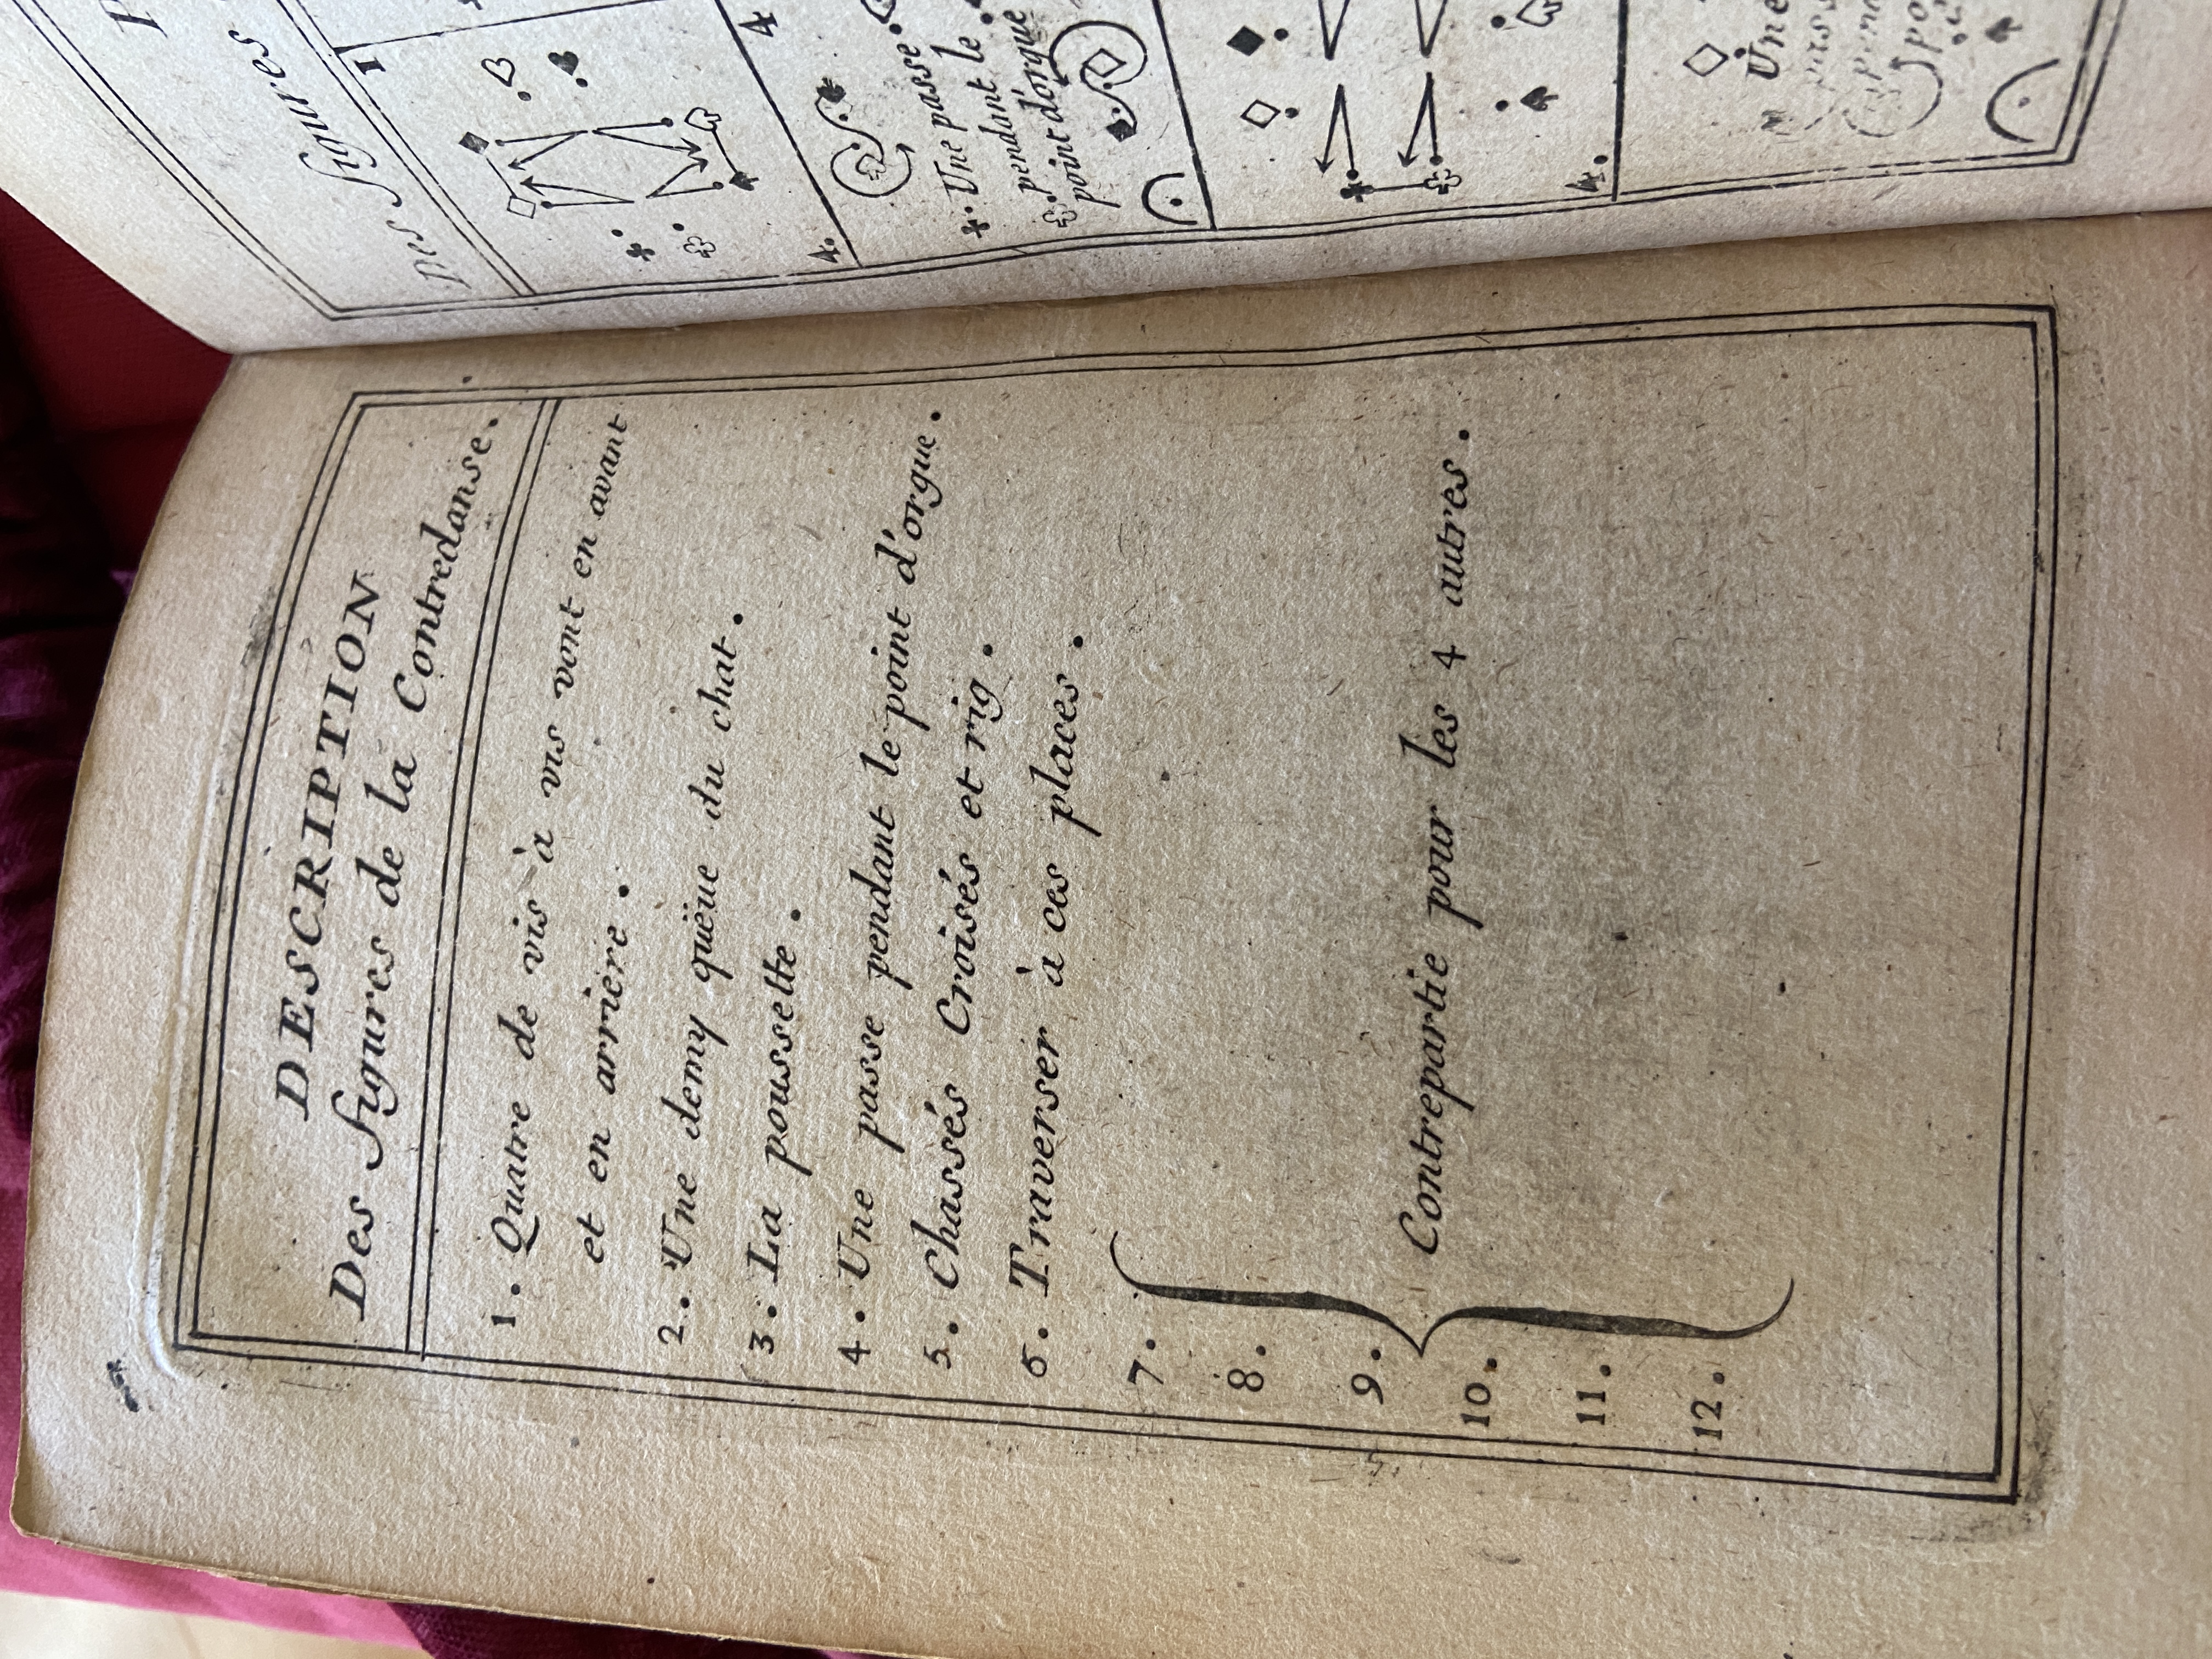 DESCRIPTION
Des Figures de la Contredanse.
1. Quatre de vis à vis vont en avant
et en arriere.
2. Une demy quëue du chat.
3. La poussette.
4. Une passe pendant le point d'orgue.
5. Chassés Croisés et rig.
6. Traverser à ces places.
7.
8.
9.
10.
11.
12.
Contrepartie pour les 4 autres.
Des Figures
1
4
4.
Une passe
pendant le
pendant
point d'orgue
4.
Une